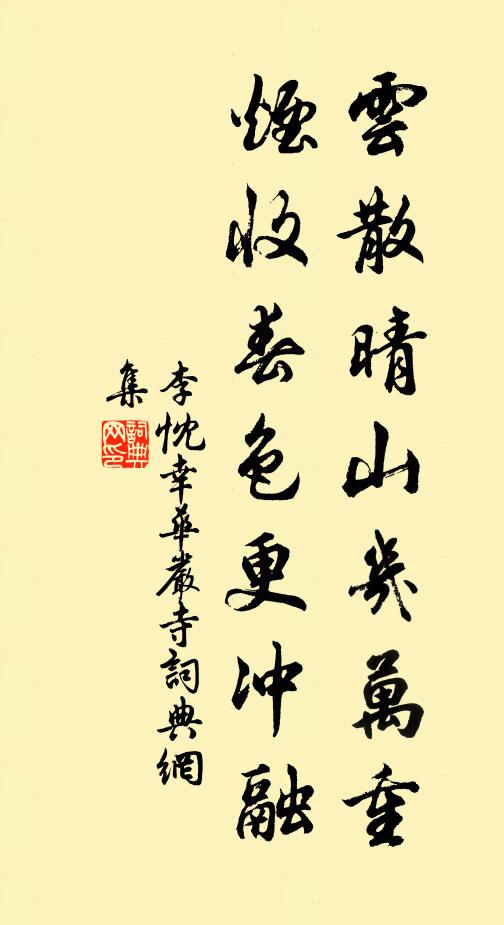 雲散晴山幾萬重
煙收春色更冲融
李忱幸華嚴寺詞典網
集
詞典网印